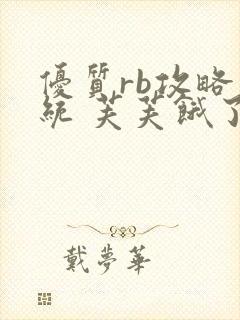 優質rb攻略
統 芙芙餓了
戴夢華